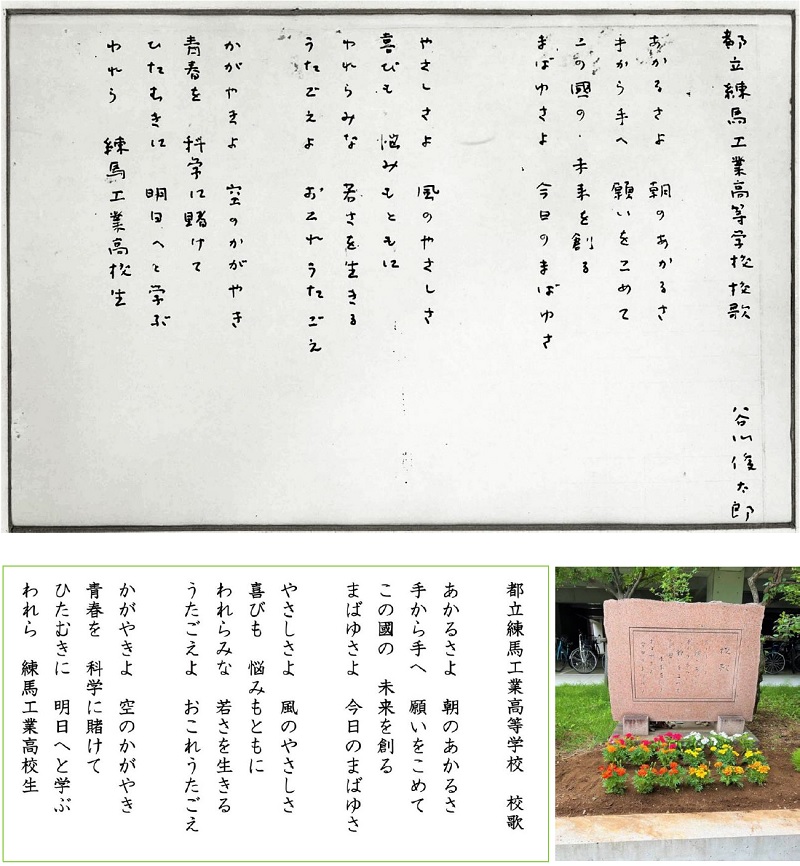 都立練馬工業高等学校校歌　谷川俊太郎
あかるさよ　朝のあかるさ
手から手へ　願いをこめて
この國の　未来を創る
まばゆさよ　今日のまばゆさ
やさしさよ　風のやさしさ
喜びも　悩みもともに
われらみな　若さを生きる
うたごえよ　おこれうたごえ
かがやきよ　空のかがやき
青春を　科学に賭けて
ひたむきに　明日へと学ぶ
われら　練馬工業高校生
都立練馬工業高等学校　校歌
あかるさよ　朝のあかるさ
手から手へ　願いをこめて
この國の　未来を創る
まばゆさよ　今日のまばゆさ
やさしさよ　風のやさしさ
喜びも　悩みもともに
われらみな　若さを生きる
うたごえよ　おこれうたごえ
かがやきよ　空のかがやき
青春を　科学に賭けて
ひたむきに　明日へと学ぶ
われら　練馬工業高校生
校歌